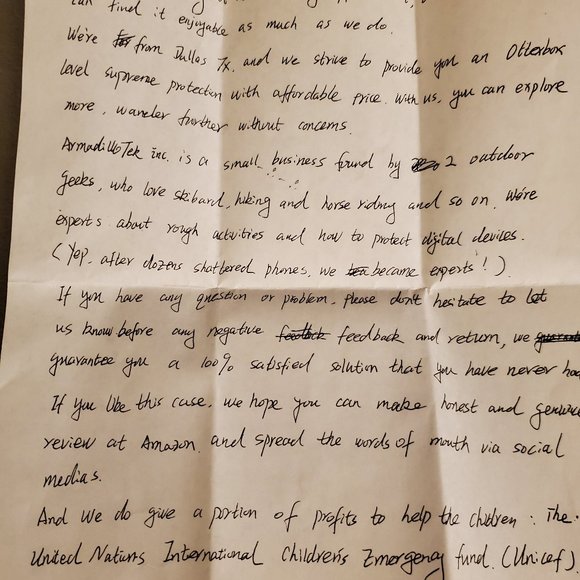 can find it enjoyable as much as we do.
We're from Dallas TX. and we strive to provide you an Otterbox
level supreme protection with affordable price. with us, you can explore
more, wander further without concerns.
ArmadilloTek inc. is a small business found by 2 outdoor
geeks, who love skibard, hiking and horse riding and so on. We're
experts about rough activities and how to protect digital devices.
(Yep, after dozens shattered phones, we became experts!)
If you have any question or problem, please don't hesitate to let
us know before any negative feedback and return, we
guarantee you a 100% satisfied solution that you have never
If you like this case, we hope you can make honest and genuine
review at Amazon. and spread the words of mouth via social
medias.
And we do give a portion of profits to help the children: The
United Nations International Children's Emergency fund. (Unicef)